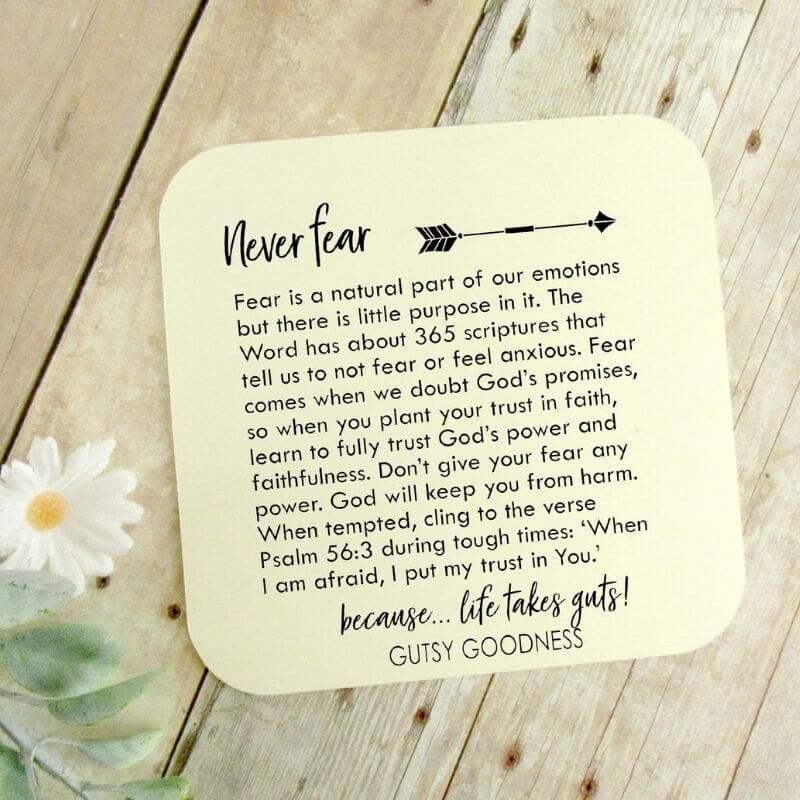 Never fear
Fear is a natural part of our emotions
but there is little purpose in it. The
Word has about 365 scriptures that
tell us to not fear or feel anxious. Fear
comes when we doubt God's promises,
so when you plant your trust in faith,
learn to fully trust God's power and
faithfulness. Don't give your fear any
power. God will keep you from harm.
When tempted, cling to the verse
Psalm 56:3 during tough times: 'When
I am afraid, I put my trust in You.'
because... life takes guts!
GUTSY GOODNESS